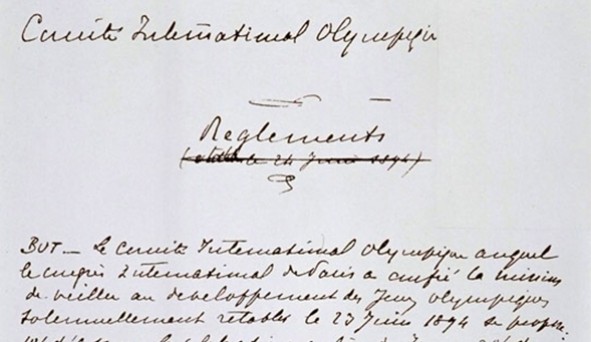 Comité International Olympique
Reglements
le 24 Juin 1894)
BUT _ Le Comité International Olympique auquel
le congrès international de Paris a confié la mission
de veiller au developpement des Jeux olympiques
solennellement rétablis le 23 Juin 1894 se propose: